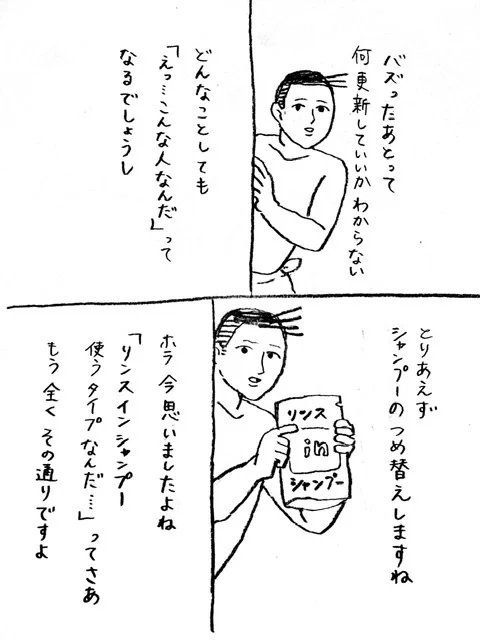 バズったあとって
何更新していいか わからない
どんなことしても
「えっ…こんな人なんだ」って
なるでしょうし
とりあえず
シャンプーの つめ替えしますね
リンス
in
シャンプー
ホラ 今 思いましたよね
「リンスインシャンプー
使うタイプ なんだ…」ってさあ
もう 全く その通りですよ